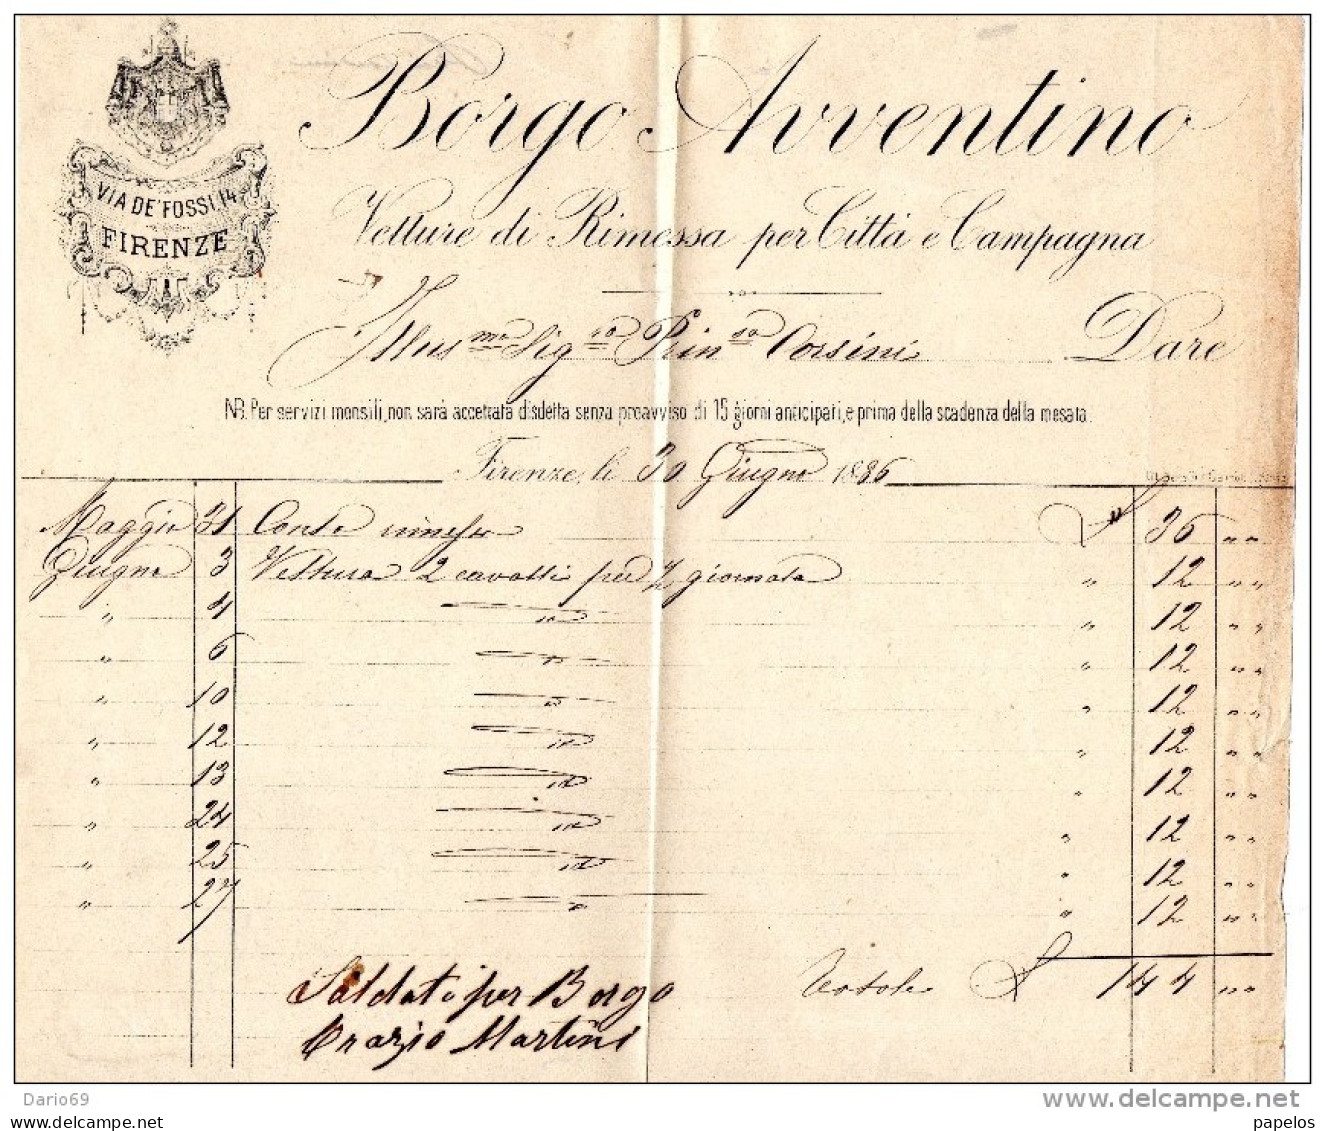 VIA DE' FOSSI, 14
FIRENZE
Borgo Avventino
Vetture di Rimessa per Città e Campagna
Illus.ma Sig.ra Prin.sa Corsini Dare
NB. Per servizi mensili, non sarà accettata disdetta senza preavviso di 15 giorni anticipati, e prima della scadenza della mesata.
Firenze, li 30 Giugno 1886
Maggio 31 Conto rimesso £ 36 " "
Giugno 3 Vettura 2 cavalli per ½ giornata " 12 " "
" 4 " " 12 " "
" 6 " " 12 " "
" 10 " " 12 " "
" 12 " " 12 " "
" 13 " " 12 " "
" 24 " " 12 " "
" 25 " " 12 " "
" 27 " " 12 " "
Totale £ 144 " "
Saldato per Borgo
Orazio Martini
Dario69
www.delcampe.net
www.papelos.com
papelos